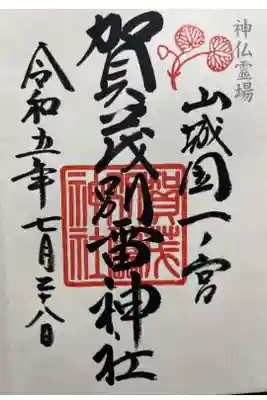 神仏霊場
山城国一ノ宮
賀茂別雷神社
賀茂別雷神社
令和五年七月二十八日